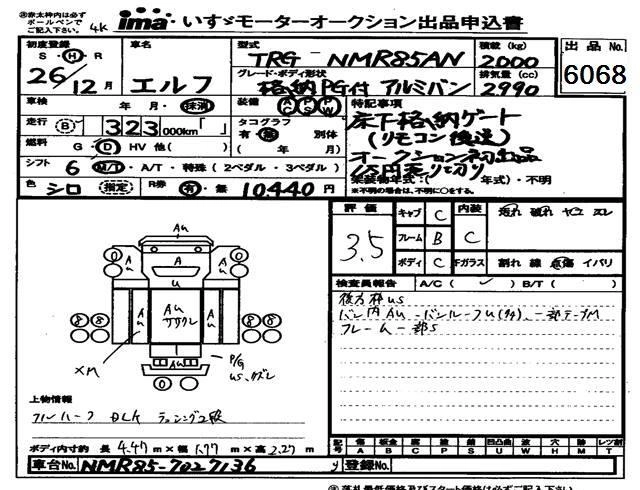 ※赤太枠内は必ず
ボールペンで
ご記入下さい。
4K
ima・いすゞモーターオークション出品申込書
初度登録 S・H・R
26/12月
車名
エルフ
型式
TRG-NMR85AN
積載(kg)
2000
出品No.
6068
グレード・ボディ形状
格納PG付 アルミバン
排気量(cc)
2990
車検 年・月・抹消
装備 AC PS PW
特記事項
床下格納ゲート
(リモコン後送)
オークション初出品
1万円売り切り
走行 B 323000km「 」
タコグラフ
有・無 別体
( 年 月)
燃料 G・D HV 他( )
シフト 6 M/T・A/T・特殊(2ペダル・3ペダル)
架装物年式:( 年式)・不明
※不明の場合は、不明に○をする。
色 シロ (指定)
R券 有・無 10440円
評価
3.5
キャブ C
内装 C
汚れ 破れ ヤニ スレ
フレーム B
ボディ C
Fガラス 割れ 線 点傷 イバリ
検査員報告 A/C( ✓ ) B/T( )
後方枠US
バン内AU-バンルーフU(タメ)、一部テープM
フレーム一部S
AU
A
U
AU
ササクレ
XM
P/G
US、クズレ
上物情報
フルハーフ BLK ラッシング2段
ボディ内寸約 長4.47m×幅1.77m×高2.27m
車台No. NMR85-7027136
記号
傷 板金 腐 塗 錆 凹凸曲 波 穴 跡 レツ割
A B C P S U W H M T
登録No.